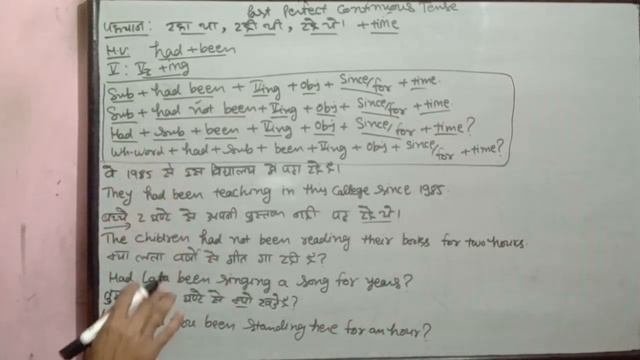 Past Perfect Continuous Tense
पहचान: रहा था, रही थी, रहे थे। + time
H.V: had + been
V: V₁ + ing
Sub + had been + Ving + obj + Since/for + time.
Sub + had not been + Ving + obj + Since/for + time.
Had + sub + been + Ving + obj + Since/for + time?
Wh-word + had + sub + been + Ving + obj + Since/for + time?
वे 1985 से इस विद्यालय में पढ़ा रहे हैं।
They had been teaching in this College since 1985.
बच्चे 2 घण्टे से अपनी पुस्तक नहीं पढ़ रहे थे।
The children had not been reading their books for two hours.
क्या लता वर्षों से गीत गा रही है?
Had Lata been singing a song for years?
घण्टे से क्यों खड़े हैं?
you been standing here for an hour?